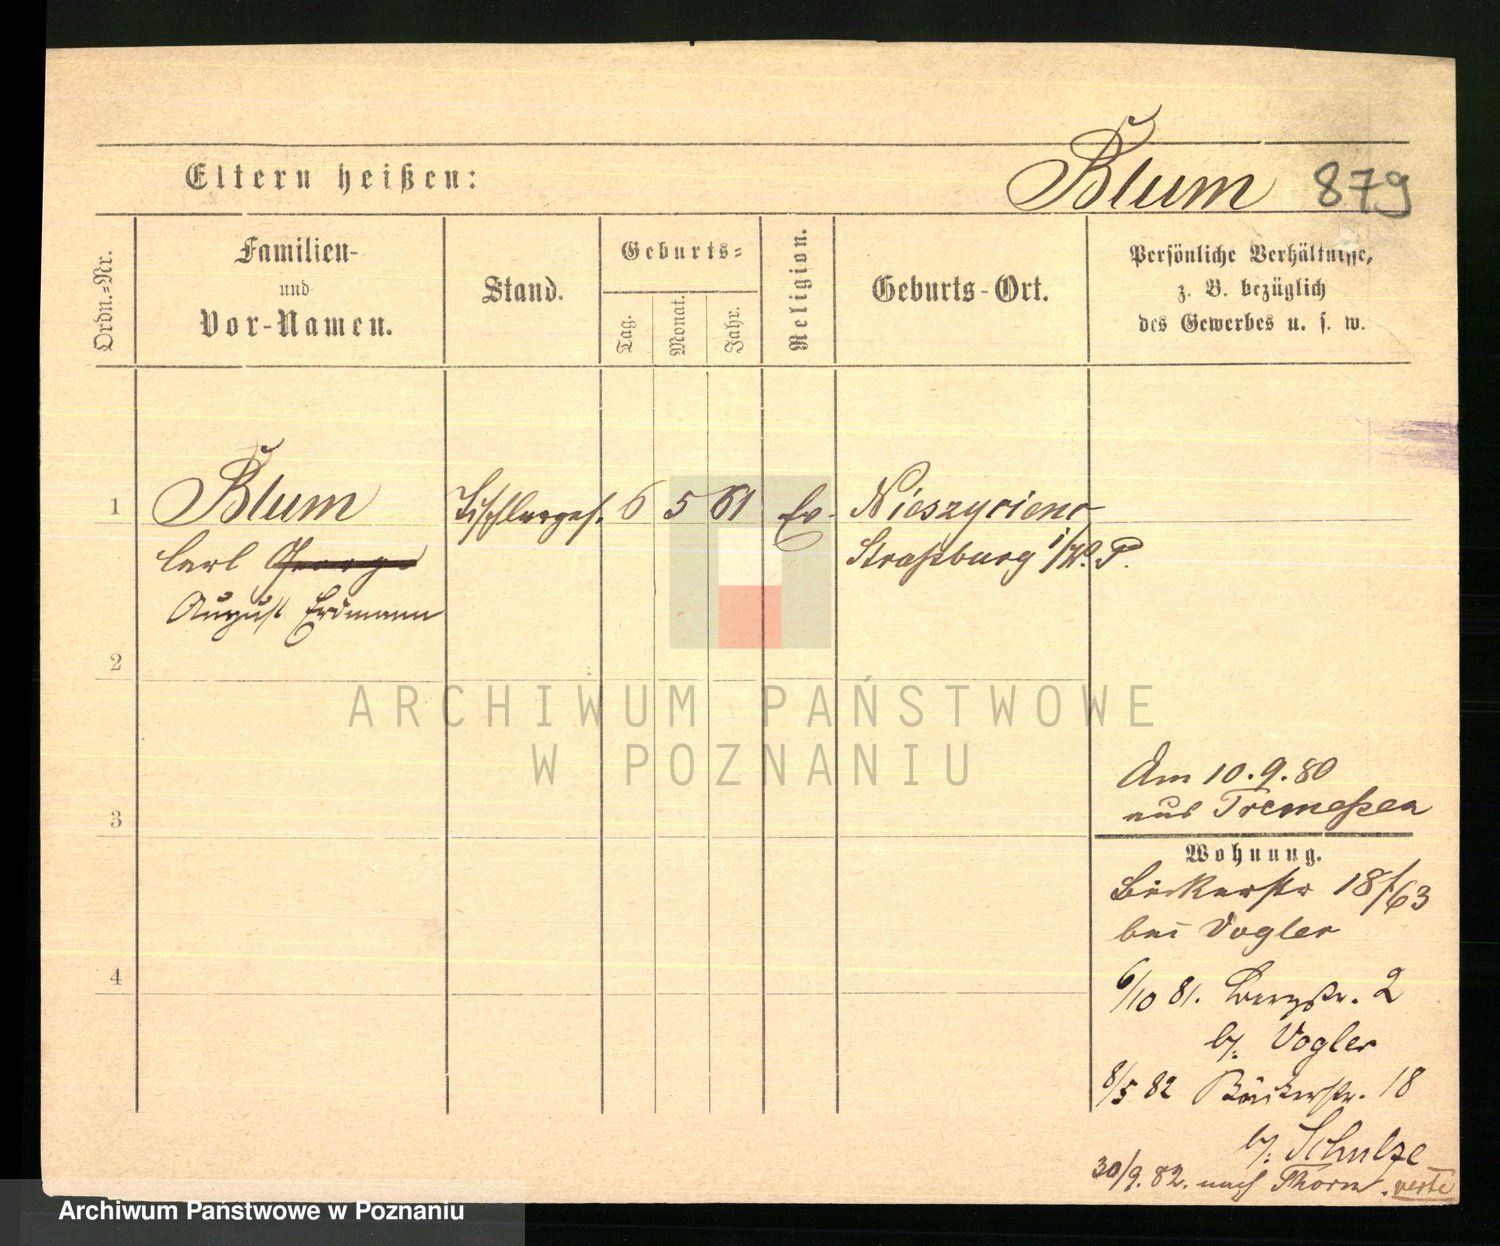 Eltern heißen:
Blum 879
Ordn.-Nr.
Familien-
und
Vor-Namen.
Stand.
Geburts-
Tag.
Monat.
Jahr.
Religion.
Geburts-Ort.
Persönliche Verhältnisse,
z. B. bezüglich
des Gewerbes u. s. w.
1 Blum Tischlerges. 6 5 61 Ev. Nieszywienc
Carl George Straßburg i/W. P.
August Erdmann
2
ARCHIWUM PAŃSTWOWE
W POZNANIU
Am 10.9.80
aus Tremeßen
3
Wohnung.
Bäckerstr 18/63
bei Vogler
4
6/10 81. Bergstr. 2
b/. Vogler
8/5 82 Bäckerstr. 18
b/. Schulze
30/9. 82. nach Thorn. verte
Archiwum Państwowe w Poznaniu